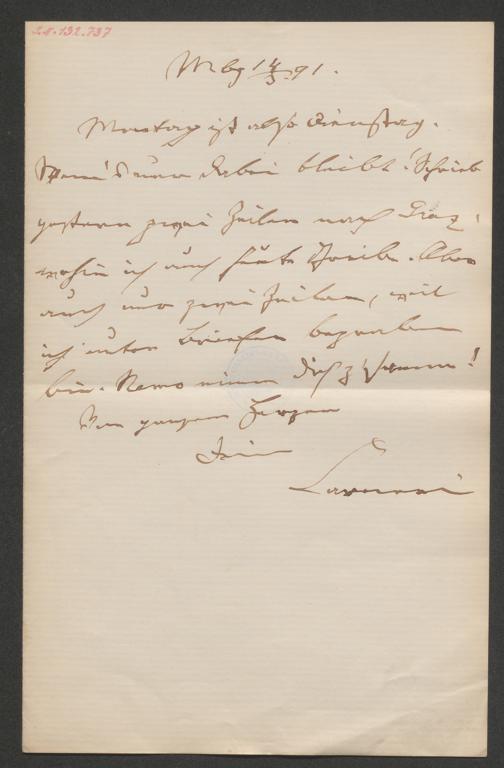 24.132.737
Mbg 14/3. 91.
Montag ist also Dienstag.
Wenn's nur dabei bleibt! Schrieb
gestern zwei Zeilen nach Graz,
wohin ich auch heute schreibe. Aber
auch nur zwei Zeilen, weil
ich unter Briefen begraben
bin. Nimm Dich zusammen!
Von ganzem Herzen
Dein
Carneri